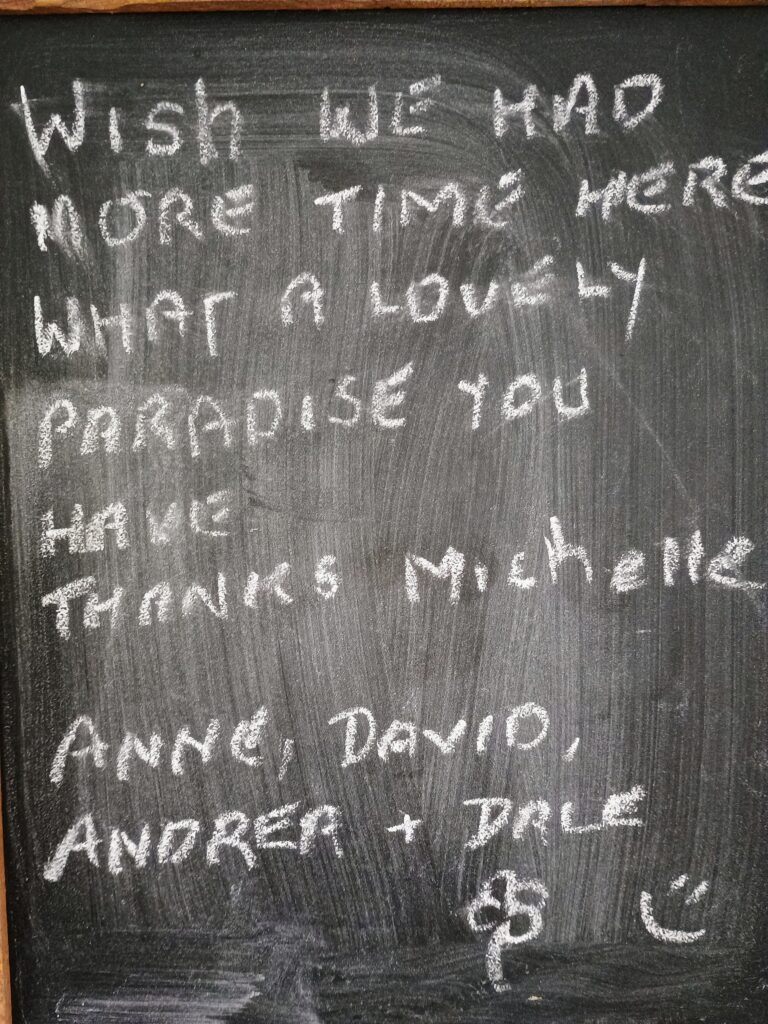 Wish WE HAD
MORE TIME HERE
WHAT A LOVELY
PARADISE YOU
HAVE
THANKS Michelle
ANNE, DAVID,
ANDREA + DALE